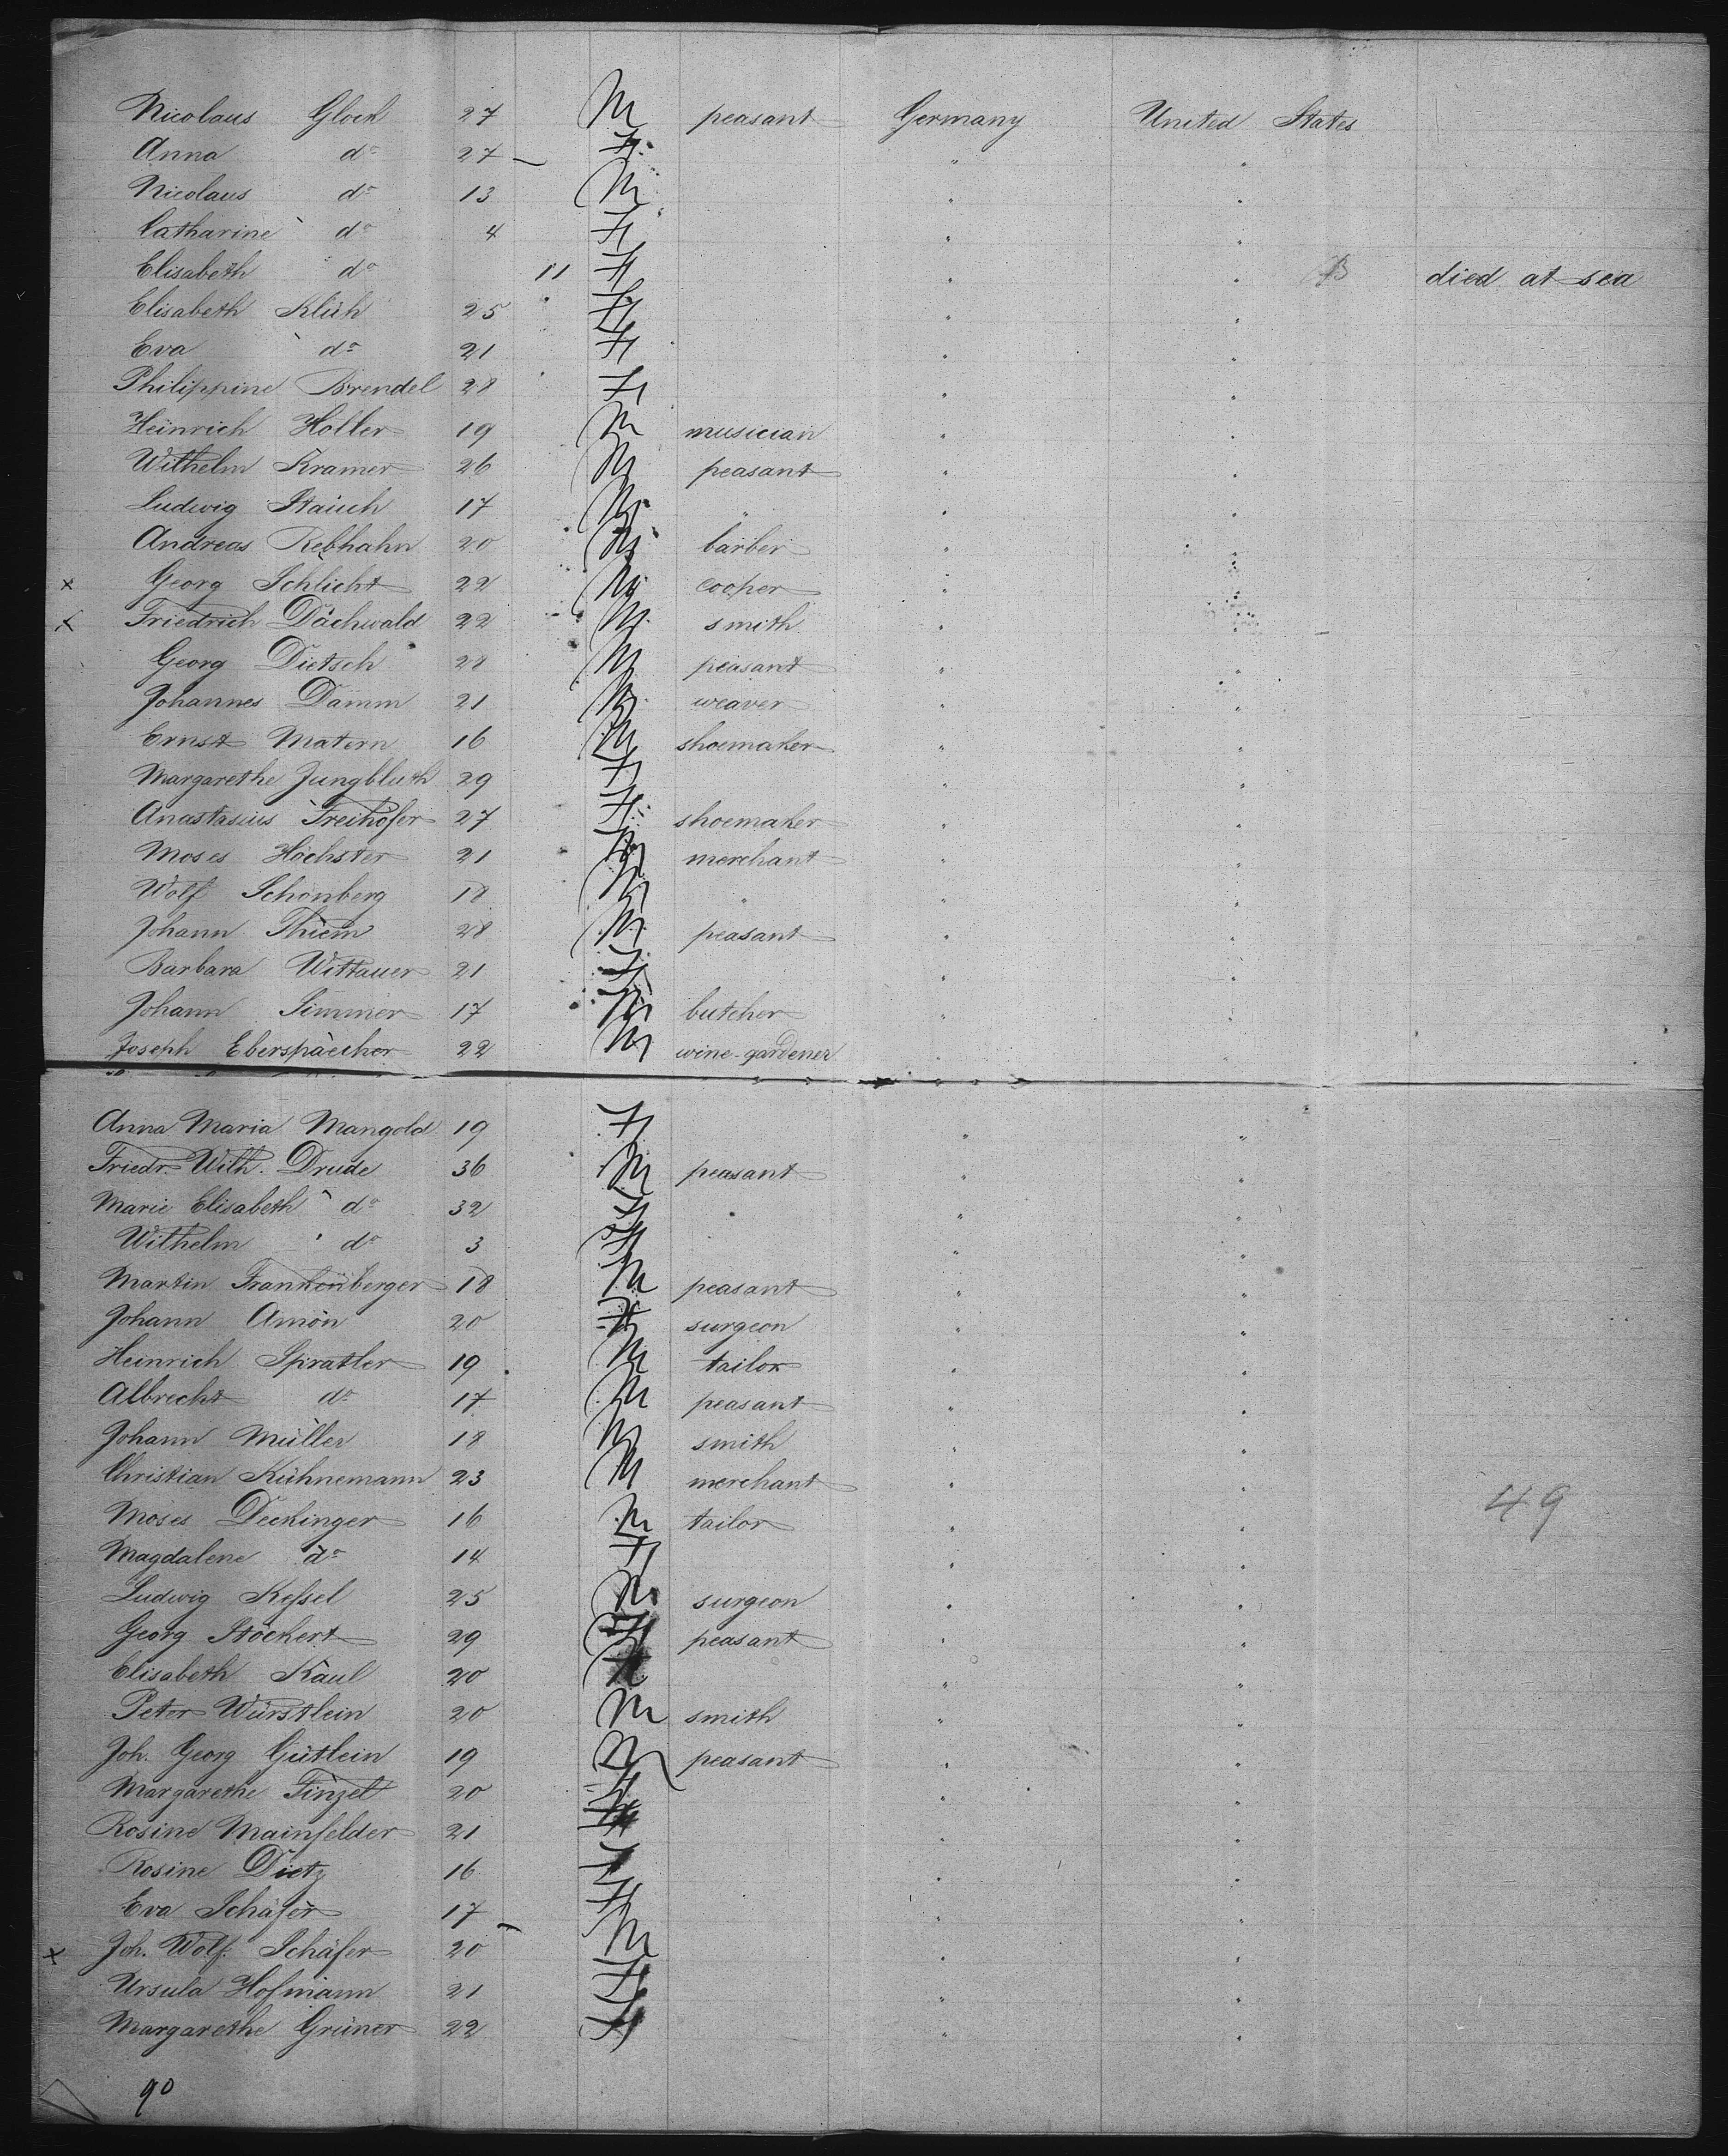 Nicolaus Glock 27 M peasant Germany United States
Anna do 27 F " "
Nicolaus do 13 M " "
Catharine do 4 F " "
Elisabeth do 11 F " " died at sea
Elisabeth Klüh 25 F " "
Eva do 21 F " "
Philippine Brendel 28 F " "
Heinrich Holler 19 M musician " "
Wilhelm Kramer 26 M peasant " "
Ludwig Stauch 17 M " " "
Andreas Rebhahn 20 M barber " "
x Georg Schlicht 22 M cooper " "
x Friedrich Dächwald 22 M smith " "
Georg Dietsch 28 M peasant " "
Johannes Damm 21 M weaver " "
Ernst Matern 16 M shoemaker " "
Margarethe Jungbluth 29 F " "
Anastasius Freihöfer 27 F shoemaker " "
Moses Höchster 21 M merchant " "
Wolf Schönberg 18 M " " "
Johann Thiem 28 M peasant " "
Barbara Wittauer 21 F " "
Johann Simmer 17 M butcher " "
Joseph Eberspäecher 22 M wine-gardener " "
Anna Maria Mangold 19 F " "
Friedr. Wilh. Drude 36 M peasant " "
Marie Elisabeth do 32 F " "
Wilhelm do 3 " "
Martin Frankenberger 18 M peasant " "
Johann Amon 20 surgeon " "
Heinrich Spratler 19 M tailor " "
Albrecht do 17 M peasant " "
Johann Müller 18 M smith " "
Christian Kühnemann 23 M merchant " "
Moses Deckinger 16 M tailor " " 49
Magdalene do 14 F " "
Ludwig Keſsel 25 M surgeon " "
Georg Stöckert 29 peasant " "
Elisabeth Kaul 20 " "
Peter Würstlein 20 M smith " "
Joh. Georg Gütlein 19 M peasant " "
Margarethe Finzel 20 F " "
Rosine Mainfelder 21 F " "
Rosine Dietz 16 F " "
Eva Schäfer 17 F " "
x Joh. Wolf. Schäfer 20 M " "
Ursula Hofmann 21 F " "
Margarethe Grüner 22 F " "
90